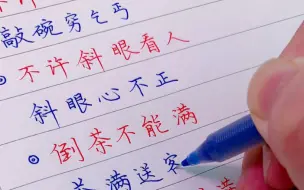 敲碗穷乞丐
不许斜眼看人
斜眼心不正
倒茶不能满
茶满送客
满